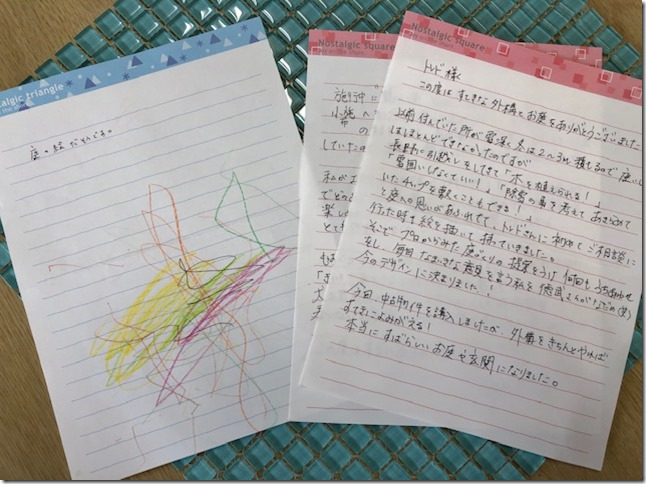 Nostalgic triangle
庭の絵だそうです。
Nostalgic square
施行中に
小施
の
していたの
私が
でどっ
楽し
とて
Nostalgic square
トレド様
この度は すてきな外構とお庭をありがとうございました
以前住んでいた所が雪深く冬は2〜3m積もるので庭いじ
はほとんどできなかったのですが
長野に引越しをしてきて「木を植えられる!」
「雪囲いしなくていい!」「除雪の事を考えて あきらめて
いたチップを敷くこともできる!」
と庭への思いがあふれてて、トレドさんに初めてご相談に
行った時も絵を描いて持っていきました。
そこで プロからみた庭づくりの提案をうけ 何回もうちあわせ
をし、毎回 なまいきな意見を言う私を 徳武さんがなだめ(笑)
今のデザインに決まりました!
今回 中古物件を購入しましたが 外構をきちんとやれば
すてきによみがえる!
本当にすばらしいお庭や玄関になりました。